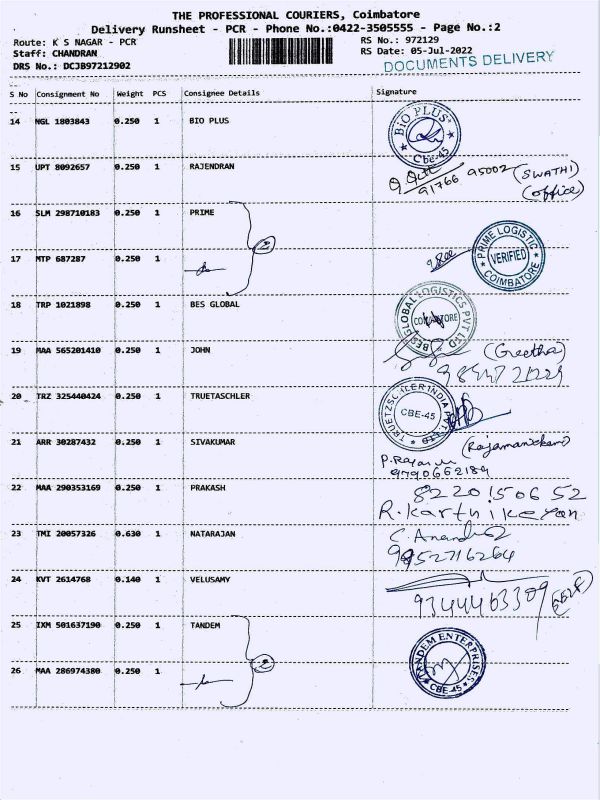 THE PROFESSIONAL COURIERS, Coimbatore
Delivery Runsheet - PCR - Phone No.:0422-3505555 - Page No.:2
Route: K S NAGAR - PCR RS No.: 972129
Staff: CHANDRAN RS Date: 05-Jul-2022
DRS No.: DCJB97212902 DOCUMENTS DELIVERY
S No Consignment No Weight PCS Consignee Details Signature
14 NGL 1803843 0.250 1 BIO PLUS
BIO PLUS
Cbe-45
15 UPT 8092657 0.250 1 RAJENDRAN
91766 95002 (SWATHI)
(office)
16 SLM 298710183 0.250 1 PRIME
2
17 MTP 687287 0.250 1
PRIME LOGISTIC
VERIFIED
COIMBATORE
18 TRP 1021898 0.250 1 BES GLOBAL
BES GLOBAL LOGISTICS PVT LTD
COIMBATORE
19 MAA 565201410 0.250 1 JOHN
(Greetha)
20 TRZ 325440424 0.250 1 TRUETASCHLER
TRUETZSCHLER INDIA PVT. LTD
CBE-45
21 ARR 30287432 0.250 1 SIVAKUMAR
(Rajamanickam)
9790662189
22 MAA 290353169 0.250 1 PRAKASH
82201 50652
R. Karthikeyan
23 TMI 20057326 0.630 1 NATARAJAN
9952716264
24 KVT 2614768 0.140 1 VELUSAMY
9344463309
25 IXM 501637190 0.250 1 TANDEM
2
TANDEM ENTERPRISES
CBE-45
26 MAA 286974380 0.250 1